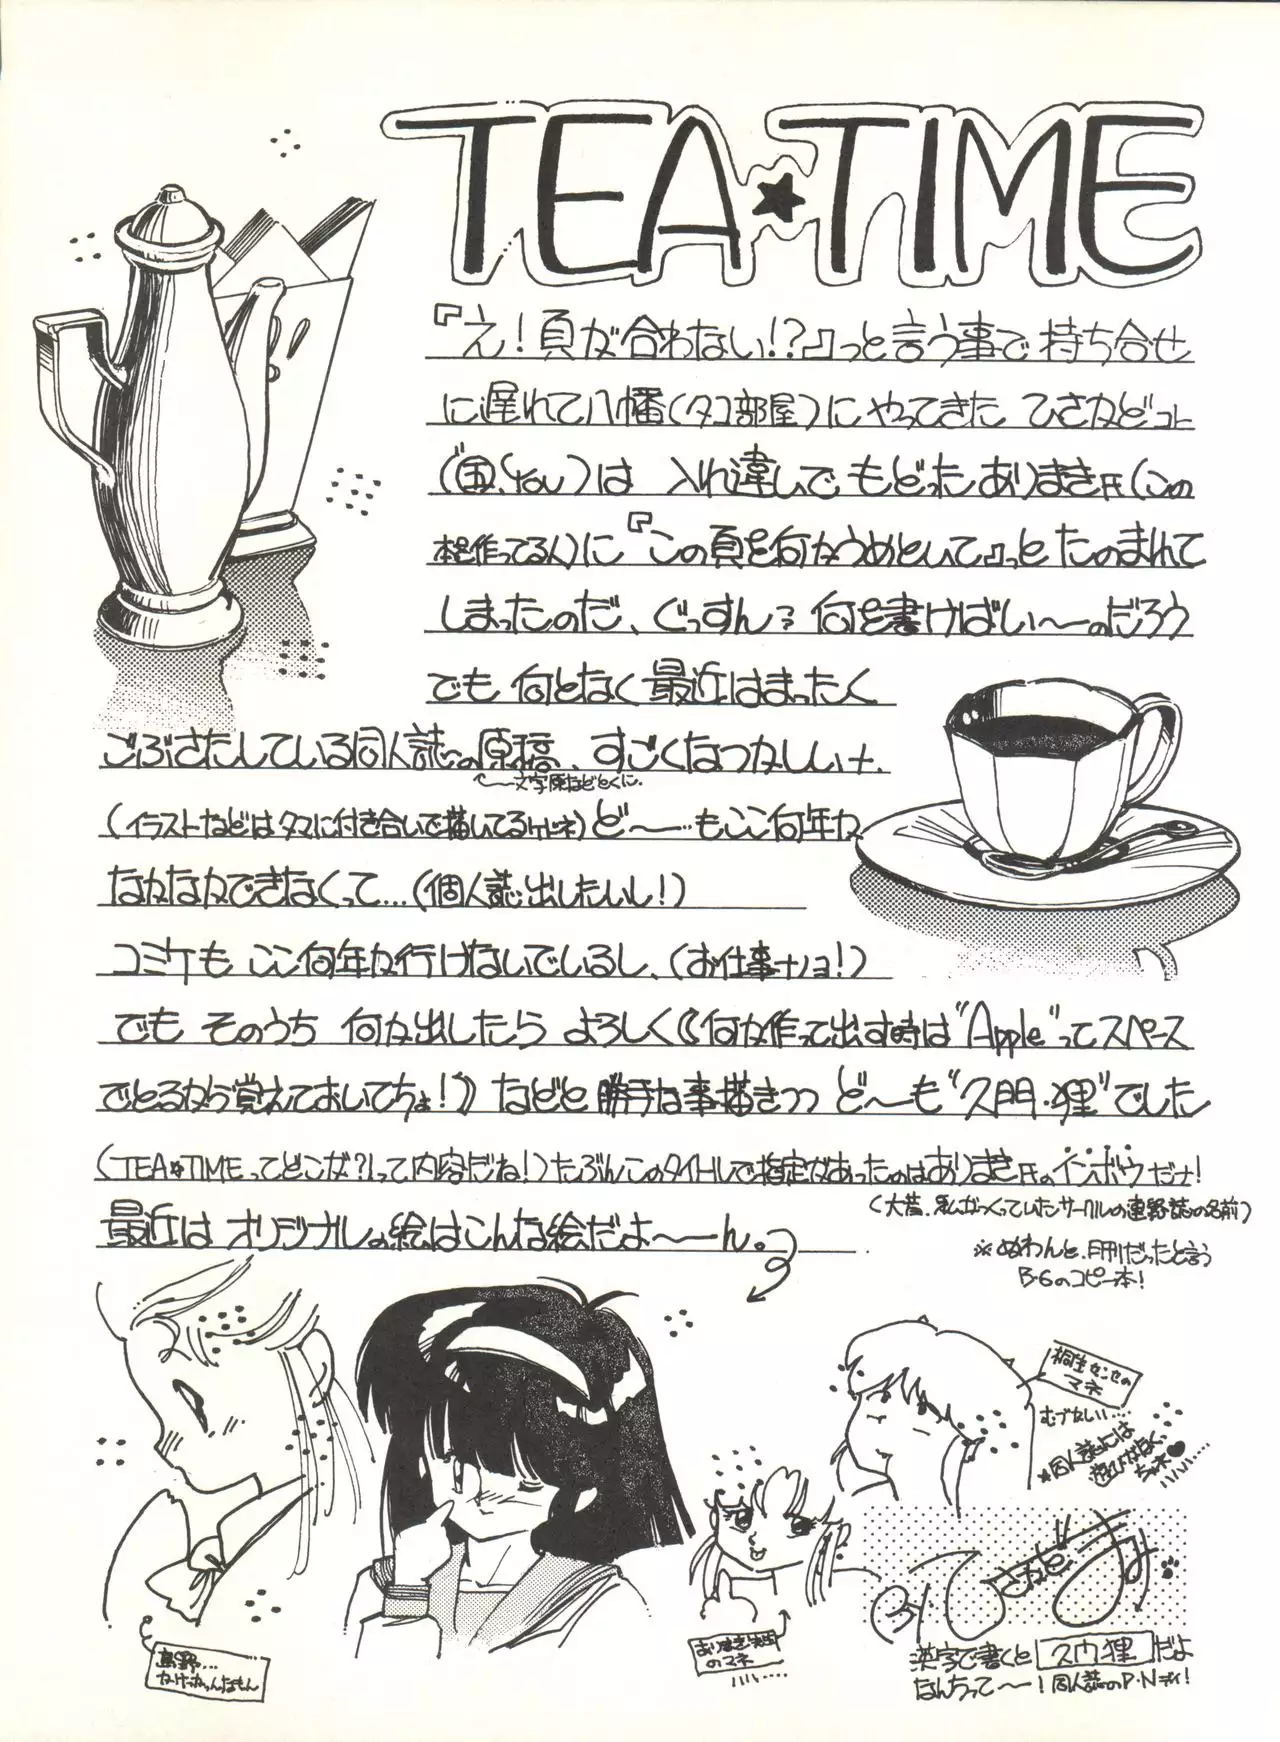 TEA★TIME
『え!頁が合わない!?』っと言う事で 持ち合せ
に遅れて八幡(タコ部屋)にやってきた ひさかどコト
(国、You)は 入れ違いで もどったありまき氏(この
本を作ってる人)に『この頁を何かうめといて』っと たのまれて
しまったのだ、ぐっすん? 何を書けばい〜のだろう
でも 何となく 最近はまったく
ごぶさたしている同人誌の原稿、すごくなつかしいナ.
文字原などとくに.
(イラストなどはタマに付き合いで描いてるけどネ)ど〜…もここ何年か
なかなかできなくって…(個人誌出したいし!)
コミケも ここ何年か行けないでいるし、(お仕事ナノヨ!)
でも そのうち 何か出したら よろしく《何か作って出す時は"Apple"ってスペース
でとるから覚えておいてちょ!》などと 勝手な事描きつつ ど〜も"久門・狸"でした
(TEA★TIMEってどこが?って内容だね!)たぶんこのタイトルで指定があったのはありまき氏のインボウだナ!
(大昔、私がつくっていたサークルの連野誌の名前)
※ぬわんと、月刊だったと言う
B-6のコピー本!
最近は オリジナルの絵はこんな絵だよ〜ん。
桐生センセの
マネ
むづかしい…
*同人誌には
遊びがなく
ちゃネ♥
ありまき先生
のマネ
真野…
かけっかんなもん
By ひさかど まみ
漢字で書くと 久門 狸 だよ
なんちって〜!同人誌のP・Nデイ!